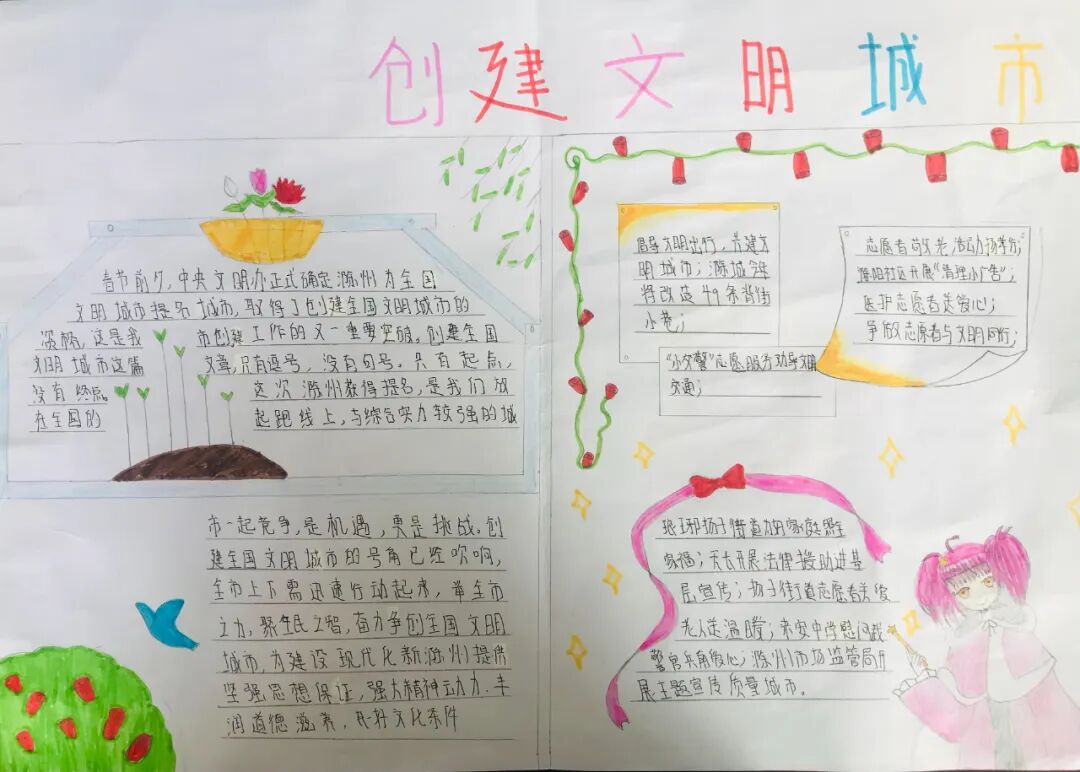 创建文明城市
春节前夕,中央文明办正式确定滁州为全国
文明城市提名城市,取得了创建全国文明城市的
资格,这是我市创建工作的又一重要突破。创建全国
文明城市这篇文章,只有逗号,没有句号。只有起点,
没有终点。这次滁州获得提名,是我们放
在全国的起跑线上,与综合实力较强的城
市一起竞争,是机遇,更是挑战。创
建全国文明城市的号角已经吹响,
全市上下需迅速行动起来,举全市
之力,聚全民之智,奋力争创全国文明
城市,为建设现代化新滁州提供
坚强思想保证,强大精神动力.丰
润道德滋养,良好文化条件
倡导文明出行,共建文
明城市;滁城今年
将改造49条背街
小巷;
"小交警"志愿服务行动导文明
交通;
志愿者
社区开展"清理小广告";
医护志愿者送爱心;
争做志愿者与文明同行;
琅琊扬子街道办的家庭
家福;天长开展法律援助进基
层宣传;扬子街道志愿者关爱
老人送温暖;来安中学慰问
警官兵献爱心;滁州市场监管局开
展主题宣传质量城市。